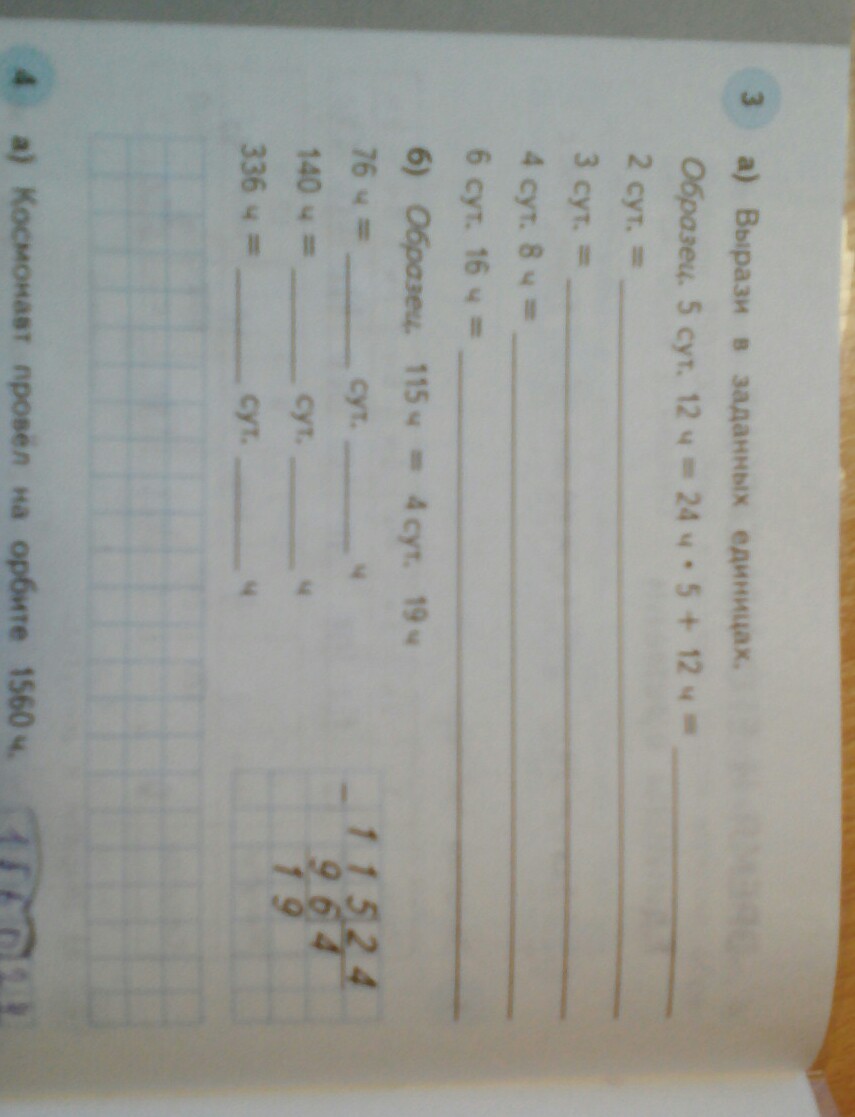 3 а) Вырази в заданных единицах.
Образец. 5 сут. 12 ч = 24 ч • 5 + 12 ч =
2 сут. =
3 сут. =
4 сут. 8 ч =
6 сут. 16 ч =
б) Образец. 115 ч = 4 сут. 19 ч
76 ч = ______ сут. ______ ч
140 ч = ______ сут. ______ ч
336 ч = ______ сут. ______ ч
– 115 24
96 4
19
4 а) Космонавт провёл на орбите 1560 ч.